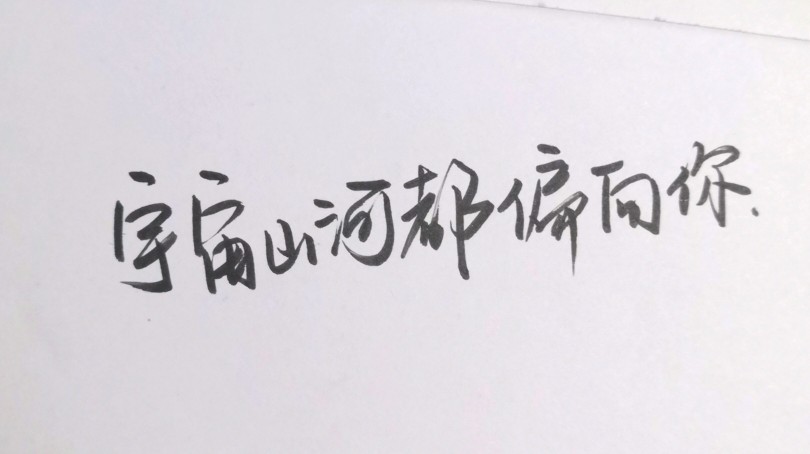 宇宙山河都偏向你.